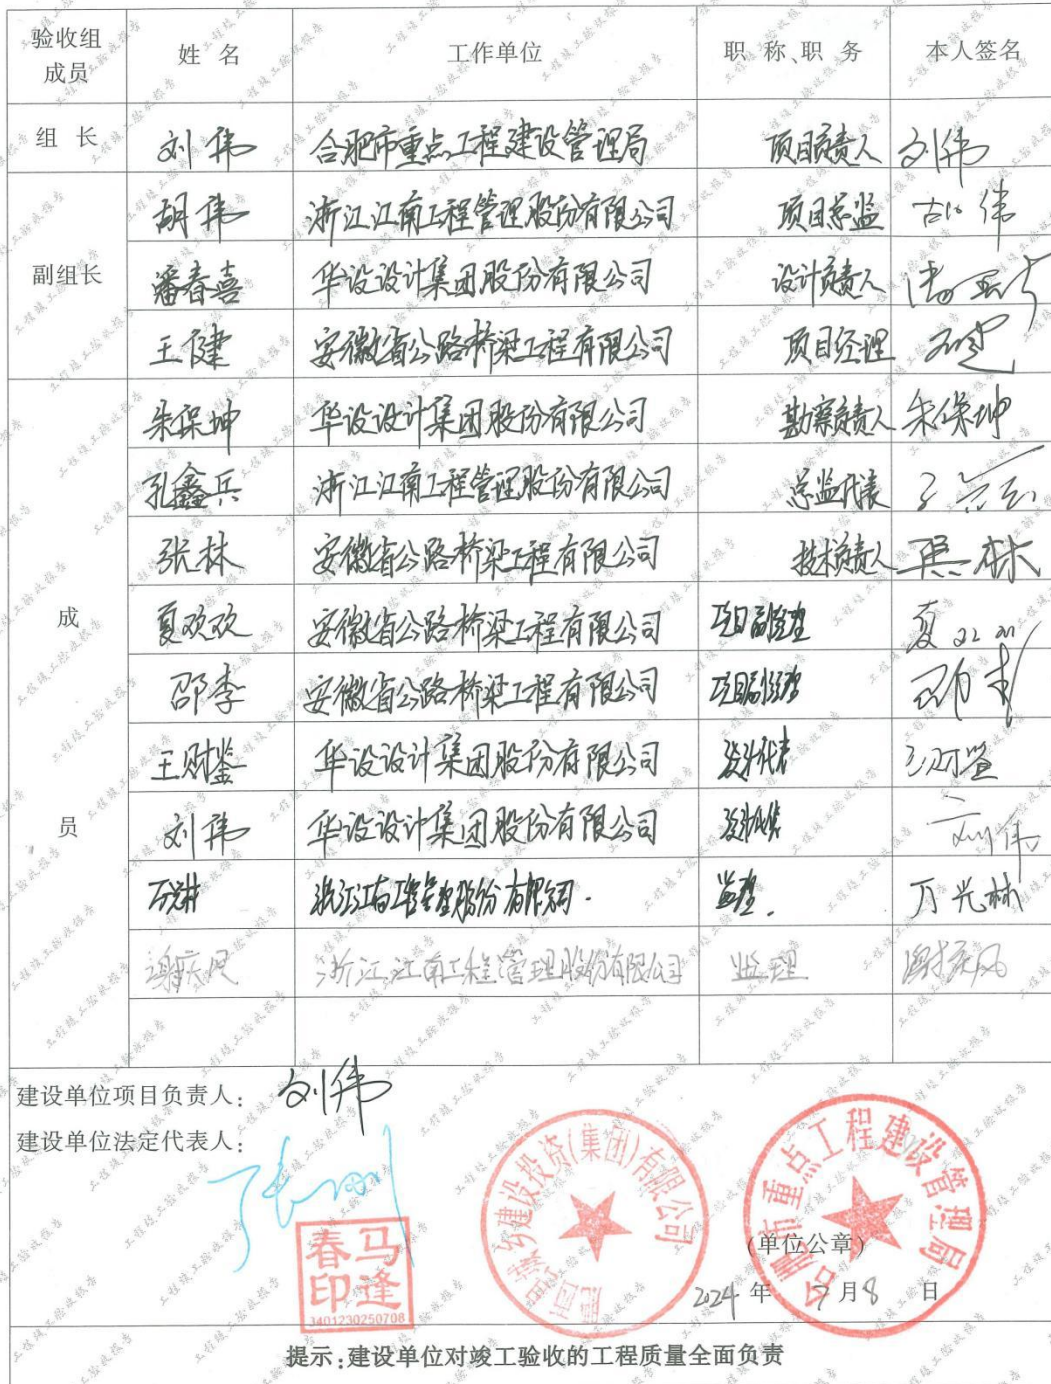 验收组成员 姓 名 工作单位 职 称、职 务 本人签名
组 长 刘伟 合肥市重点工程建设管理局 项目负责人 刘伟
副组长
胡伟 浙江江南工程管理股份有限公司 项目总监 胡伟
潘春喜 华设设计集团股份有限公司 设计负责人
王健 安徽省公路桥梁工程有限公司 项目经理 王健
成员
朱保坤 华设设计集团股份有限公司 勘察负责人 朱保坤
孔鑫兵 浙江江南工程管理股份有限公司 总监代表
张林 安徽省公路桥梁工程有限公司 技术负责人
夏欢欢 安徽省公路桥梁工程有限公司 项目副经理 夏欢欢
邵李 安徽省公路桥梁工程有限公司 项目副经理 邵李
王财鉴 华设设计集团股份有限公司 设计代表 王财鉴
刘伟 华设设计集团股份有限公司 设计代表 刘伟
万光林 浙江江南工程管理股份有限公司. 监理. 万光林
浙江江南工程管理股份有限公司 监理
建设单位项目负责人: 刘伟
建设单位法定代表人:
马逢春印
3401230250708
肥西县城乡建设投资(集团)有限公司
合肥市重点工程建设管理局
(单位公章)
2024 年 7 月 8 日
提示:建设单位对竣工验收的工程质量全面负责
工程竣工验收报告